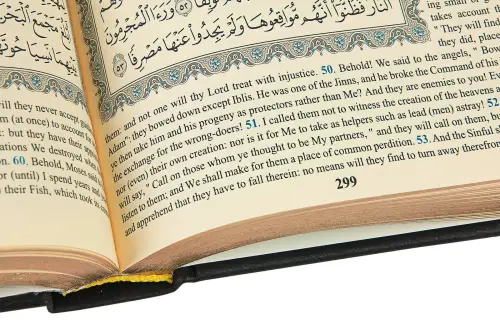 وَرَءَا الْمُجْرِمُونَ
النَّارَ فَظَنُّوا أَنَّهُم مُّوَاقِعُوهَا وَلَمْ يَجِدُوا عَنْهَا مَصْرِفًا ٥٣
ing small or
takes account
"They will find
they did, place
them: and not one will thy Lord treat with injustice. 50. Behold! We said to the angels, " Bow
Adam": they bowed down except Iblis. He was one of the Jinns, and he broke the Command of his
we then take him and his progeny as protectors rather than Me? And they are enemies to you! E
the exchange for the wrong-doers! 51. I called them not to witness the creation of the heavens a
nor (even) their own creation: nor is it for Me to take as helpers such as lead (men) astray! 52.
will say," Call on those whom ye thought to be My partners," and they will call on them, bu
listen to them; and We shall make for them a place of common perdition. 53. And the Sinful s
and apprehend that they have to fall therein: no means will they find to turn away therefrom
299
مَجْمَعَ الْبَحْرَ
بَيْنِهِمَا نَسِيَا حُوتَهُ
will they never accept
m (at once) to account
: but they have their
ations We destroyed when
on. 60. Behold, Moses said
or (until) I spend years and
their Fish, which took its